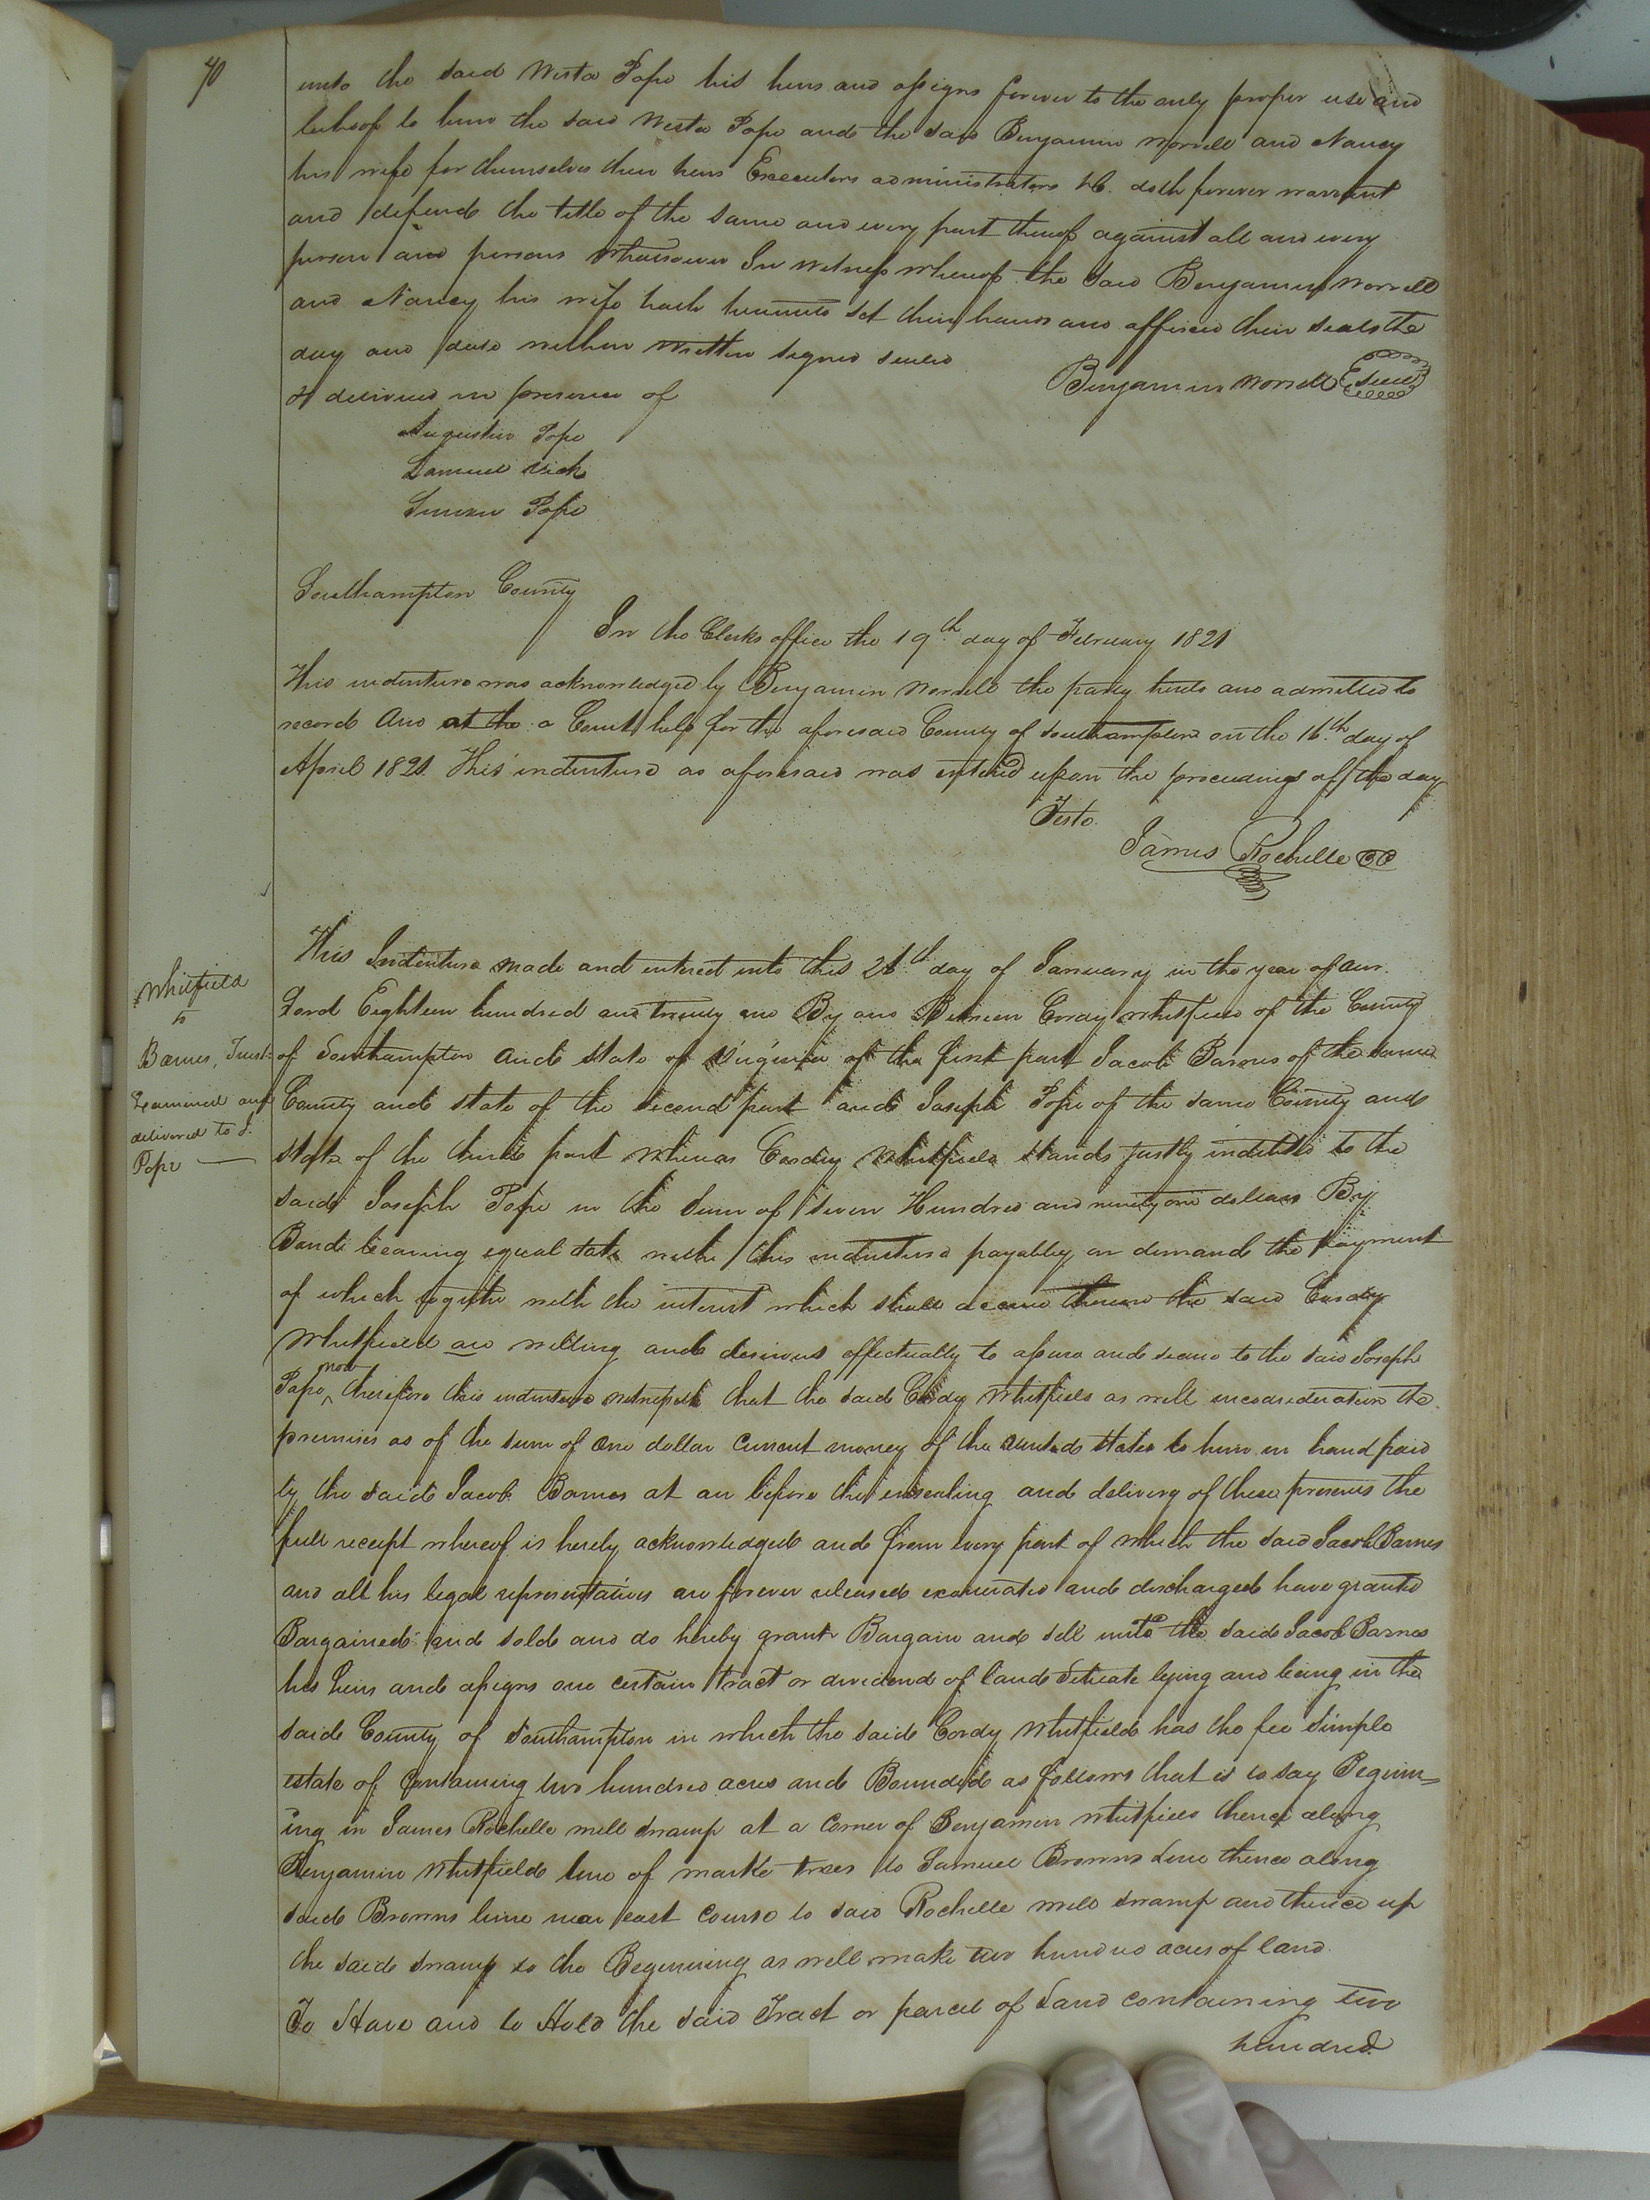 70
unto the said Wister Pope his heirs and assigns forever to the only proper use and
behoof to him the said Wister Pope and the said Benjamin Worrell and Nancy
his wife for themselves their heirs Executors administrators &c. doth forever warrant
and defend the title of the same and every part thereof against all and every
person and persons whatsoever In witness whereof the said Benjamin Worrell
and Nancy his wife hath hereunto set their hands and affixed their seals the
day and date within written signed sealed
& delivered in presence of
Benjamin Worrell Seal
Augustin Pope
Samuel Vick
Simon Pope
Southampton County
In the Clerks office the 19th day of February 1821
This indenture was acknowledged by Benjamin Worrell the party hereto and admitted to
record And at the a Court held for the aforesaid County of Southampton on the 16th day of
April 1821. This indenture as aforesaid was entered upon the proceedings of the day
Teste.
James Rochelle CC
Whitfield
to
Barnes, Trust
Examined and
delivered to J.
Pope
This Indenture made and entered into this 26th day of January in the year of our
Lord Eighteen hundred and twenty one By and Between Cordy Whitfield of the County
of Southampton and State of Virginia of the first part Jacob Barnes of the same
County and state of the second part and Joseph Pope of the same County and
state of the third part Whereas Cordy Whitfield stands justly indebted to the
said Joseph Pope in the sum of seven Hundred and ninety one dollars By
Bond bearing equal date with this indenture payabley on demand the payment
of which together with the interest which shall accrue thereon the said Cordy
Whitfield are willing and desirous effectually to assure and secure to the said Joseph
Pope now therefore this indenture witnesseth that the said Cordy Whitfield as well inconsideration the
premises as of the sum of one dollar current money of the united states to him in hand paid
by the said Jacob Barnes at an before the ensealing and delivery of these presents the
full receipt whereof is hereby acknowledged and from every part of which the said Jacob Barnes
and all his legal representatives are forever released exonerated and discharged have granted
Bargained and sold and do hereby grant Bargain and sell unto the said Jacob Barnes
his heirs and assigns one certain tract or dividend of land situate lying and being in the
said County of Southampton in which the said Cordy Whitfield has the fee simple
estate of Containing two hundred acres and Bounded as follows that is to say Beginn=
ing in James Rochelle mill swamp at a Corner of Benjamin Whitfield thence along
Benjamin Whitfield line of marke trees to Samuel Browns line thence along
said Browns line near east course to said Rochelle mill swamp and thence up
the said swamp to the Beginning as well make two hundred acres of land.
To Have and to Hold the said Tract or parcel of Land containing two
hundred